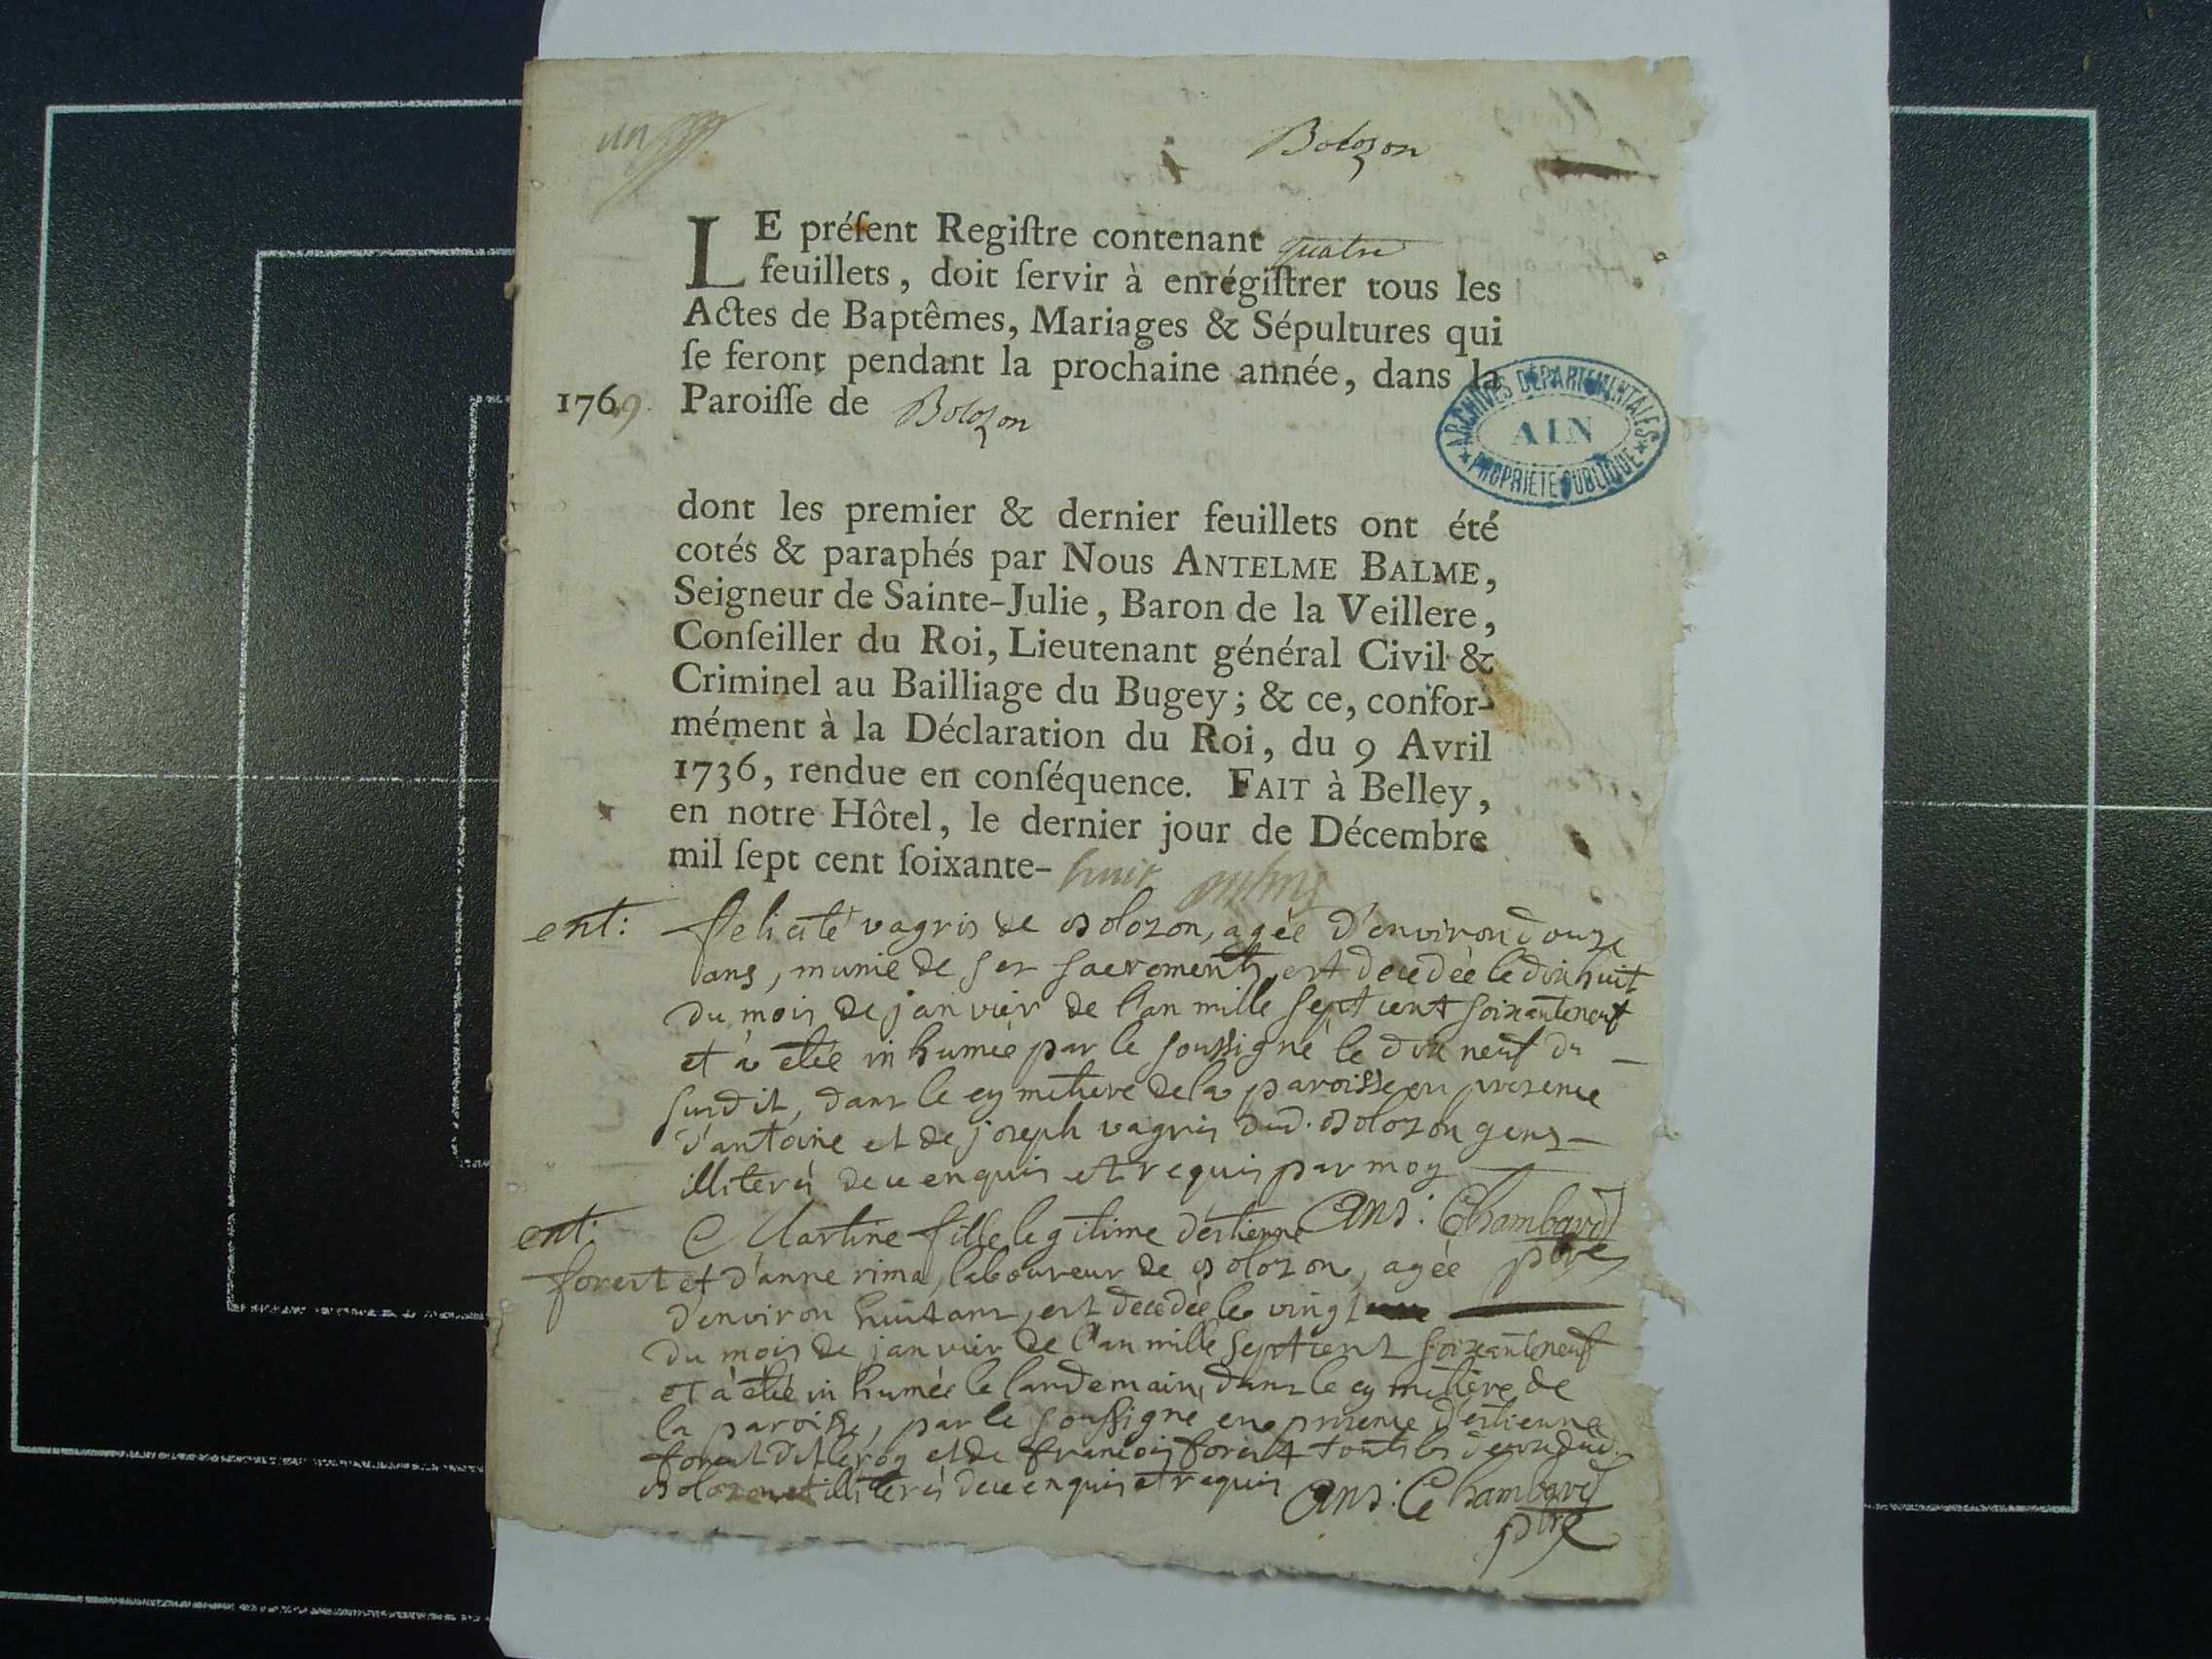 un
Bolozon
LE préſent Regiſtre contenant quatre
feuillets, doit ſervir à enrégiſtrer tous les
Actes de Baptêmes, Mariages & Sépultures qui
ſe feront pendant la prochaine année, dans la
1769. Paroiſſe de Bolozon
ARCHIVES DÉPARTEMENTALES
AIN
PROPRIÉTÉ PUBLIQUE
dont les premier & dernier feuillets ont été
cotés & paraphés par Nous ANTELME BALME,
Seigneur de Sainte-Julie, Baron de la Veillere,
Conſeiller du Roi, Lieutenant général Civil &
Criminel au Bailliage du Bugey; & ce, confor-
mément à la Déclaration du Roi, du 9 Avril
1736, rendue en conſéquence. FAIT à Belley,
en notre Hôtel, le dernier jour de Décembre
mil ſept cent ſoixante-huit
ent: felicité vagris de Bolozon, agée d'environ douze
ans, munie de ses sacrements, est decedée le dixhuit
du mois de janvier de l'an mille sept cent soixanteneuf
et à etée inhumée par le soussigné le dix neuf du
susdit, dans le cymetiere de la paroisse en presence
d'antoine et de joseph vagris dud. Bolozon gens
illiterés de ce enquis et requis par moy
Ans: Chambard
ptre
ent: Martine fille legitime d'estienne
forest et d'anne rima, laboureur de Bolozon, agée
d'environ huit ans, est decedée le vingt
du mois de janvier de l'an mille sept cent soixanteneuf
et à etée inhumée le landemain, dans le cymetiere de
la paroisse, par le soussigné en presence d'estienne
forest dit leroy et de françois forest touts les deux dud.
Bolozon et illiterés de ce enquis et requis
Ans: Chambard
ptre